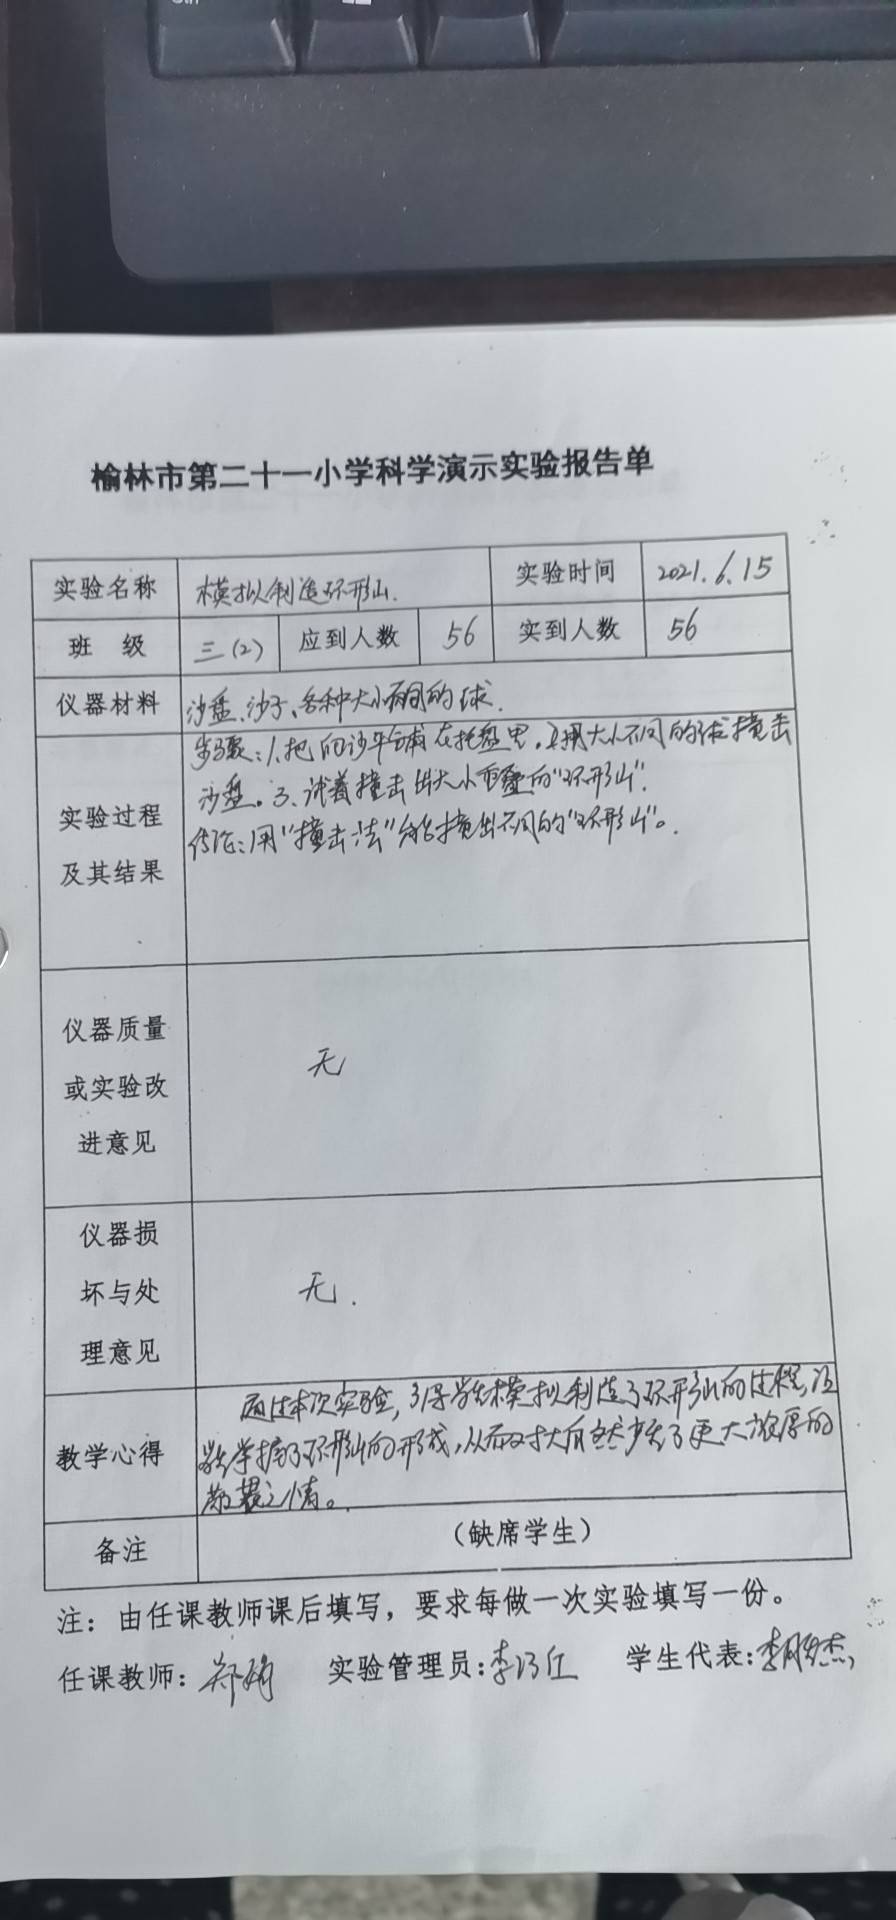 榆林市第二十一小学科学演示实验报告单
实验名称 模拟制造环形山. 实验时间 2021.6.15
班 级 三(2) 应到人数 56 实到人数 56
仪器材料 沙盘、沙子、各种大小不同的球.
步骤:1.把 沙平铺在托盘里.2.用大小不同的球撞击
沙盘。3.试着撞击出大小 的"环形山".
实验过程
及其结果
结论:用"撞击法"能撞出不同的"环形山"。
仪器质量
或实验改
进意见
无
仪器损
坏与处
理意见
无.
教学心得
通过本次实验, 学生模拟制造了环形山的过程,让
学生掌握了环形山的形成,从而对大自然产生了更大浓厚的
之情。
备注 (缺席学生)
注:由任课教师课后填写,要求每做一次实验填写一份。
任课教师: 实验管理员: 学生代表: